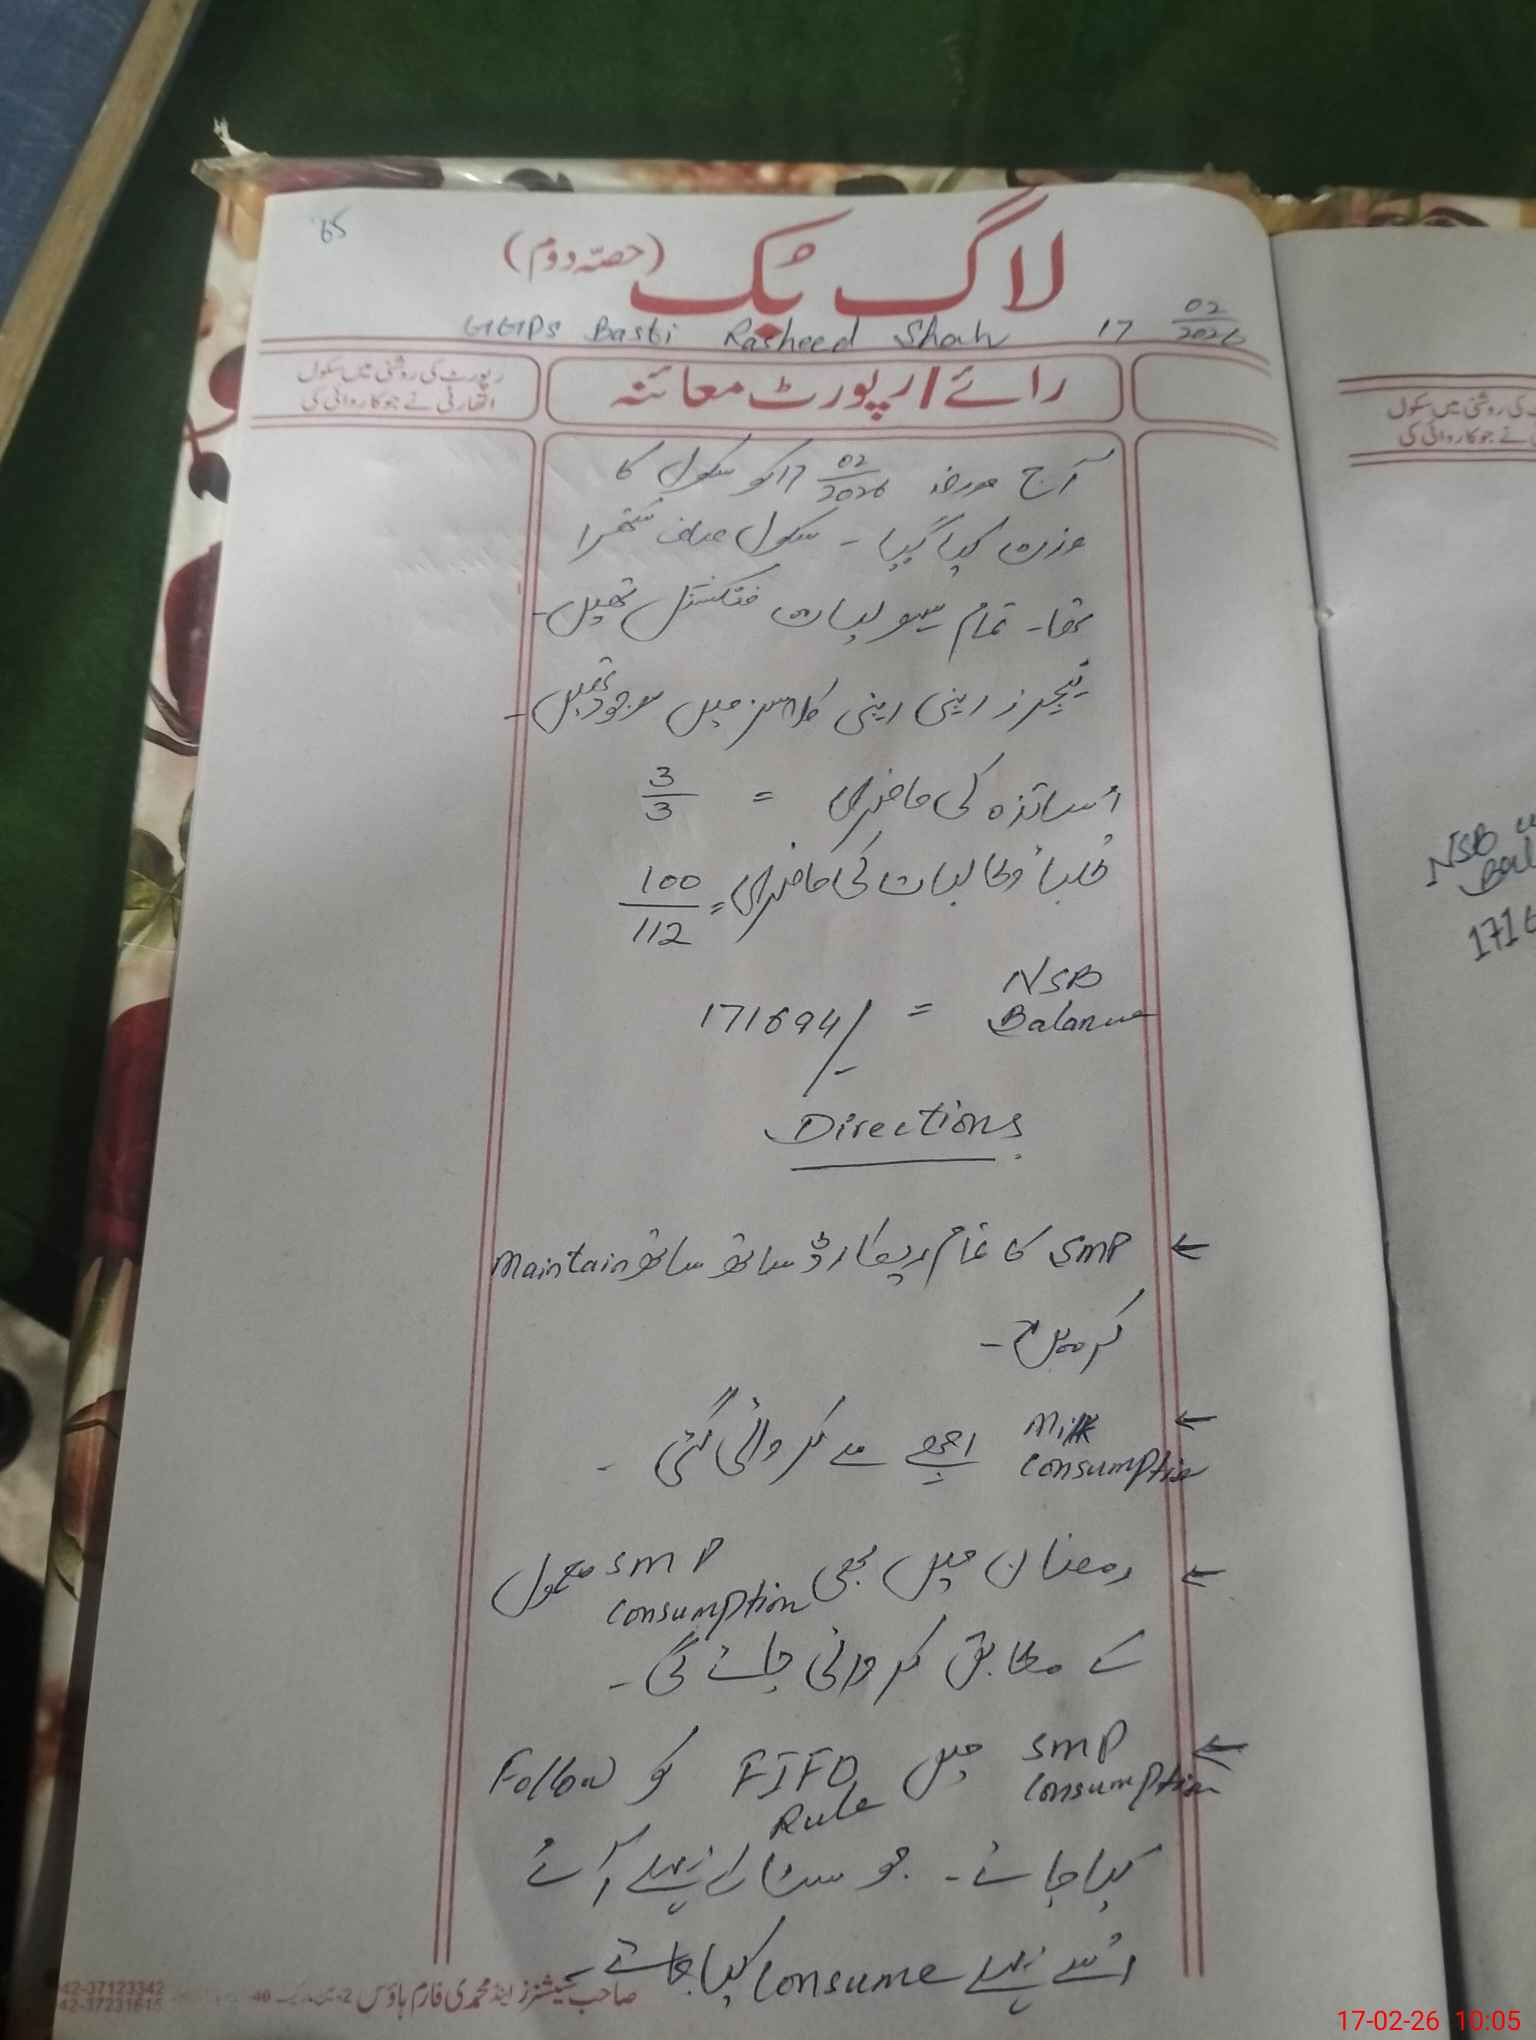 65
لاگ بک (حصہ دوم)
GGPS Basti Rasheed Shah 17 02/2026
رپورٹ کی روشنی میں سکول
اتھارٹی نے جو کاروائی کی
رائے/رپورٹ معائنہ
آج مورخہ 17 02/2026 کو سکول کا
وزٹ کیا گیا ۔ سکول صاف ستھرا
تھا۔ تمام سہولیات فنکشنل تھیں۔
ٹیچرز اپنی اپنی کلاسز میں موجود تھیں۔
اُساتذہ کی حاضری = 3/3
طلباء و طالبات کی حاضری = 100/112
NSB Balance = 171694/-
Directions
← SMP کا تمام ریکارڈ ساتھ ساتھ Maintain
کریں۔
← Milk Consumption اچھے سے کروائی گئی ۔
← رمضان میں بھی SMP Consumption معمول
کے مطابق کروائی جائے گی ۔
← SMP Consumption میں FIFO Rule کو Follow
کیا جائے ۔ جو سٹاک پہلے آئے
اُسے پہلے Consume کیا جائے ۔
صاحب سٹیشنرز اینڈ محمدی فارم ہاؤس
42-37123342
42-37231615
کی روشنی میں سکول
نے جو کاروائی کی
NSB
Bal
1716
17-02-26 10:05